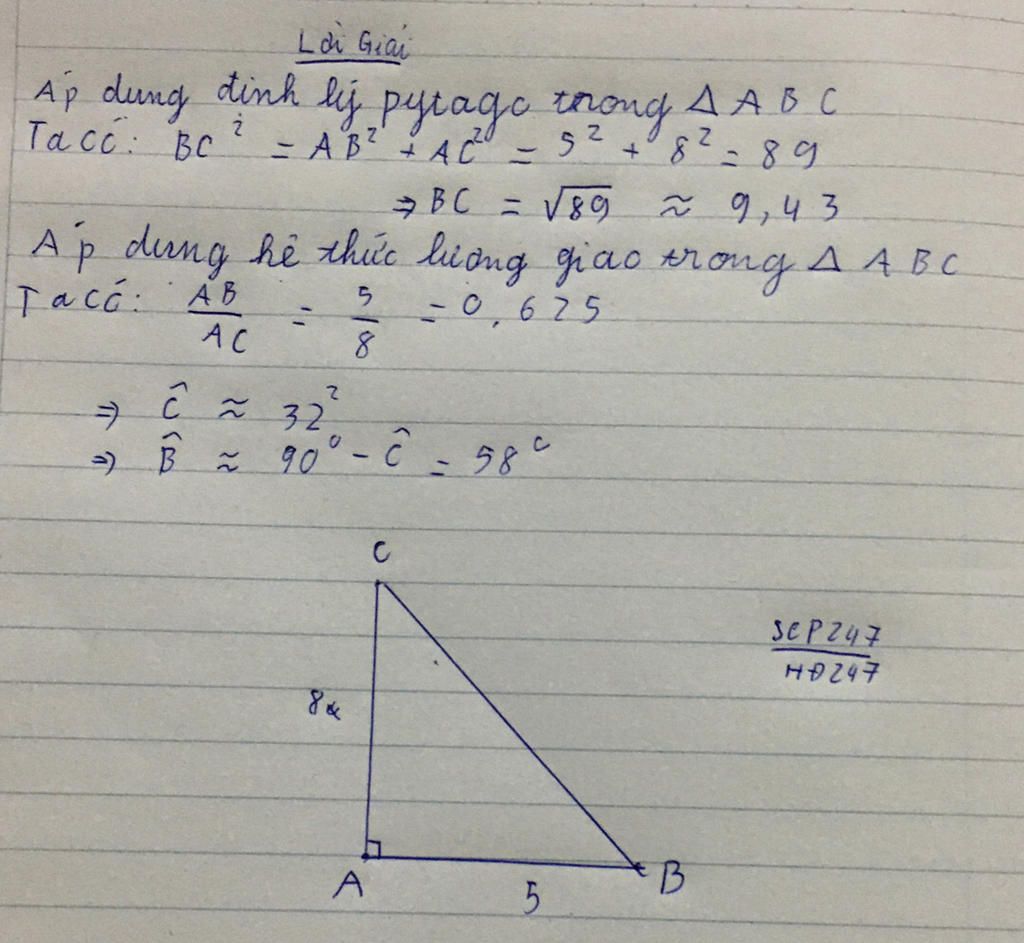 Lời Giải
Áp dung định lý pytago trong Δ A B C
Ta có: BC² = AB² + AC² = 5² + 8² = 89
⇒ BC = √89 ≈ 9,43
Áp dung hê thức lương giac trong Δ A B C
Ta có: AB/AC = 5/8 = 0,625
⇒ Ĉ ≈ 32²
⇒ B̂ ≈ 90° - Ĉ = 58°
C
SCP247
HĐ247
8
A
5
B